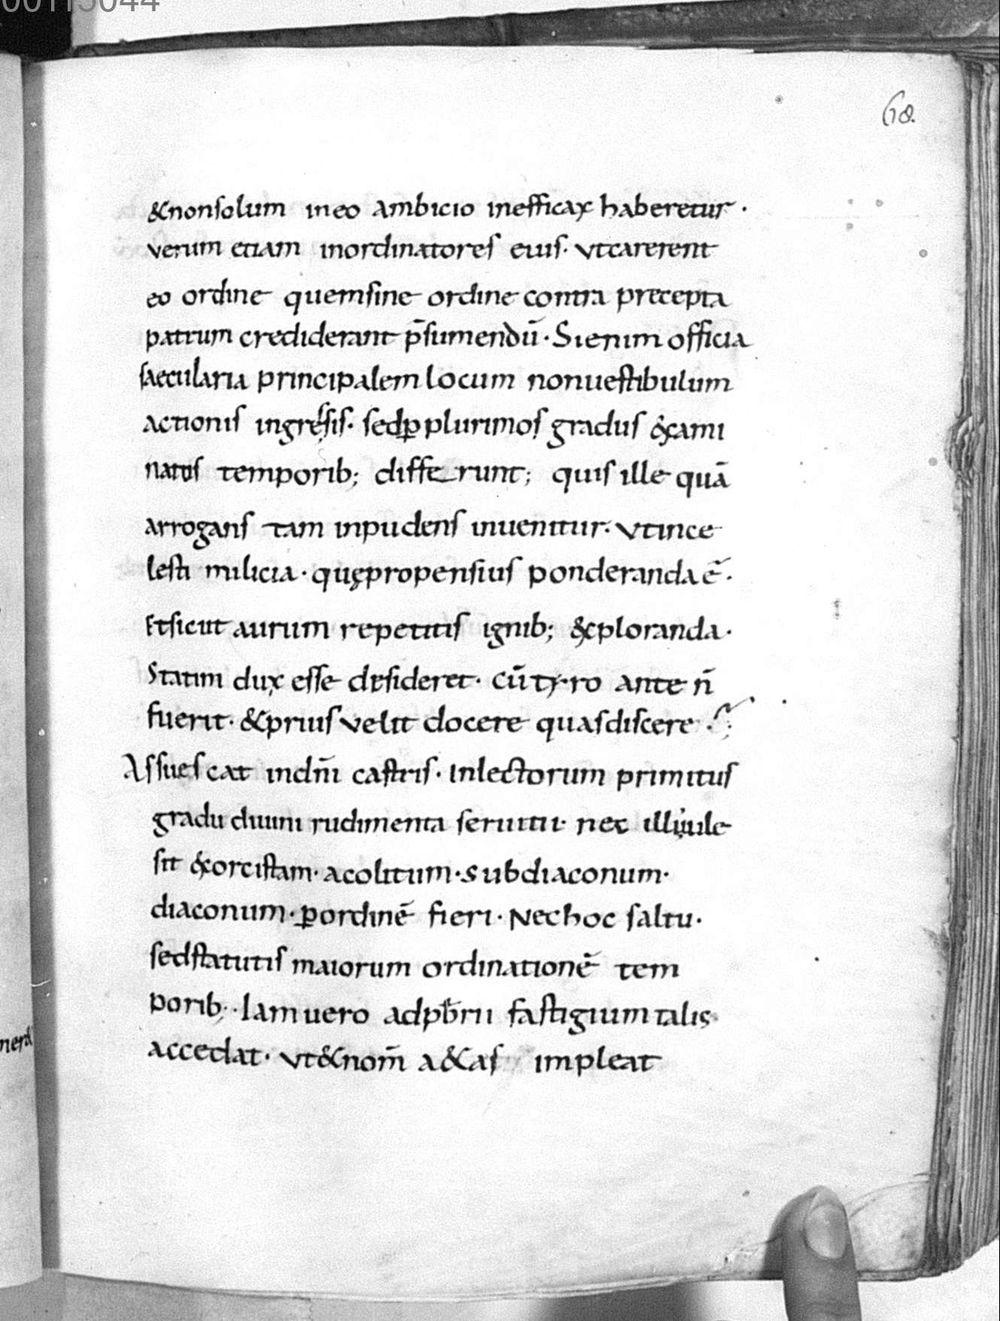 00115044
68.
&nonſolum in eo ambicio inefficax haberetur ·
verum etiam inordinatoreſ eiuſ· vtcarerent
eo ordine quemſine ordine contra precepta
patrum crediderant p̄ſumendū · Sienim officia
ſaecularia principalem locum nonueſtibulum
actioniſ ingreſſiſ· ſedꝑ plurimoſ graduſ &xami
natuſ temporib; differunt; quiſ ille quā
arroganſ tam inpudenſ inuenitur· vtince
leſti milicia · quępropenſiuſ ponderanda ē·
Etſicut aurum repetitiſ ignib; &xploranda·
Statim dux eſſe deſideret· cū tyro ante ñ
fuerit· &priuſ velit docere quaſdiſcere ·
Aſſueſcat indn̄i caſtriſ· inlectorum primituſ
gradu diuini rudimenta ſeruitii· nec illi uile
ſit &xorciſtam· acolitum· subdiaconum·
diaconum· ꝑordinē fieri· Nechoc ſaltu·
ſedſtatutiſ maiorum ordinationē tem
porib; · Iam uero adpƀrii faſtigium talis·
accedat· vt&nom̄ a&aſ impleat